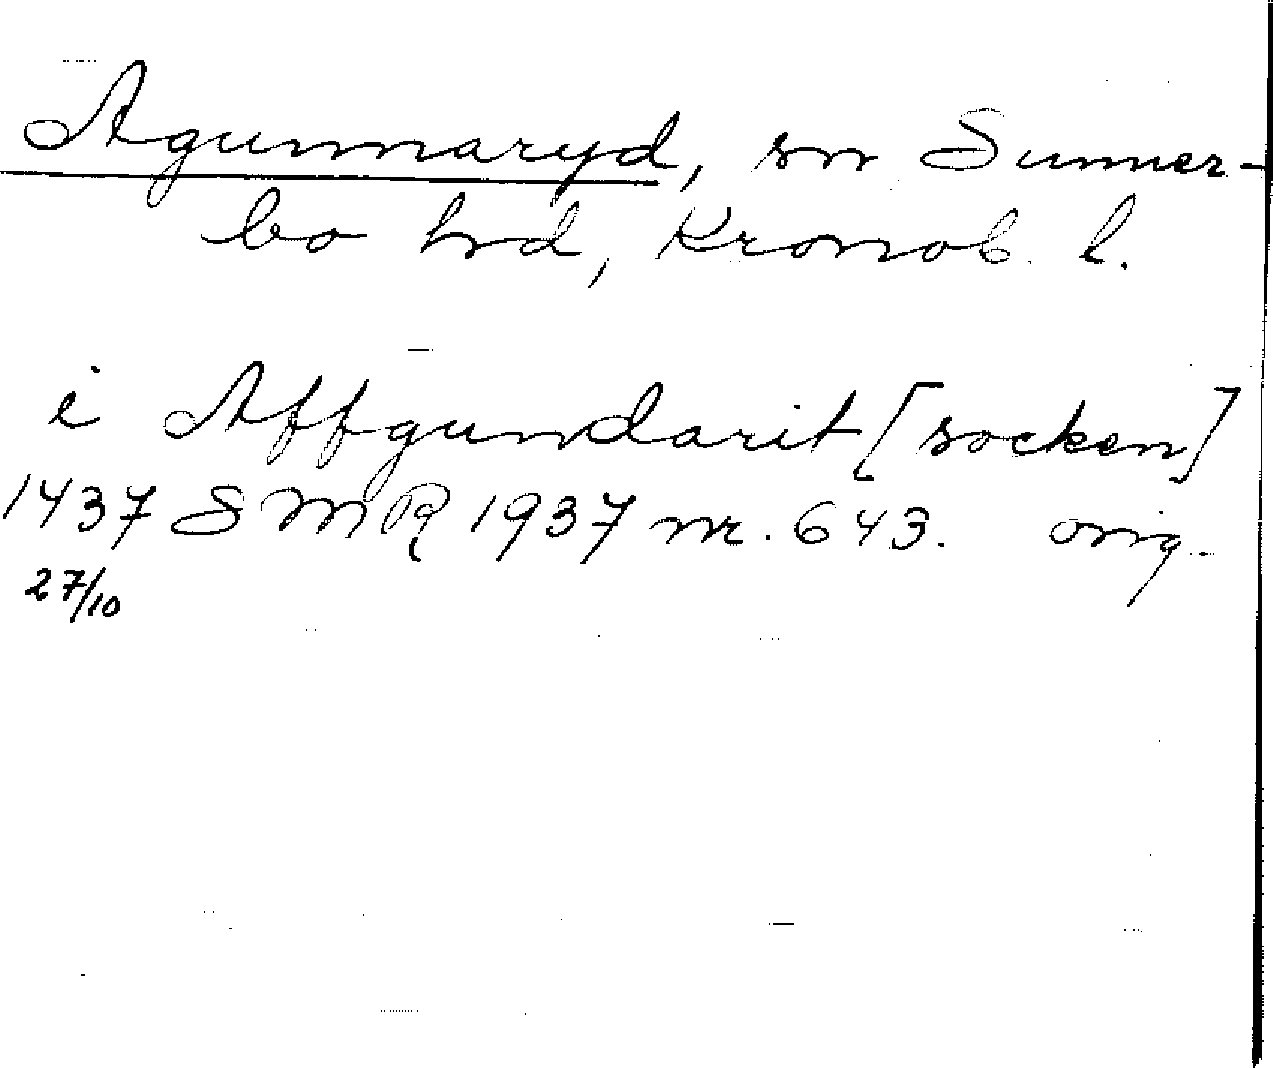 Agunnaryd, sn Sunner-
bo hrd, Kronob. l.
i Affgundarit [socken]
1437 SMR 1937 nr. 643. orig.
27/10